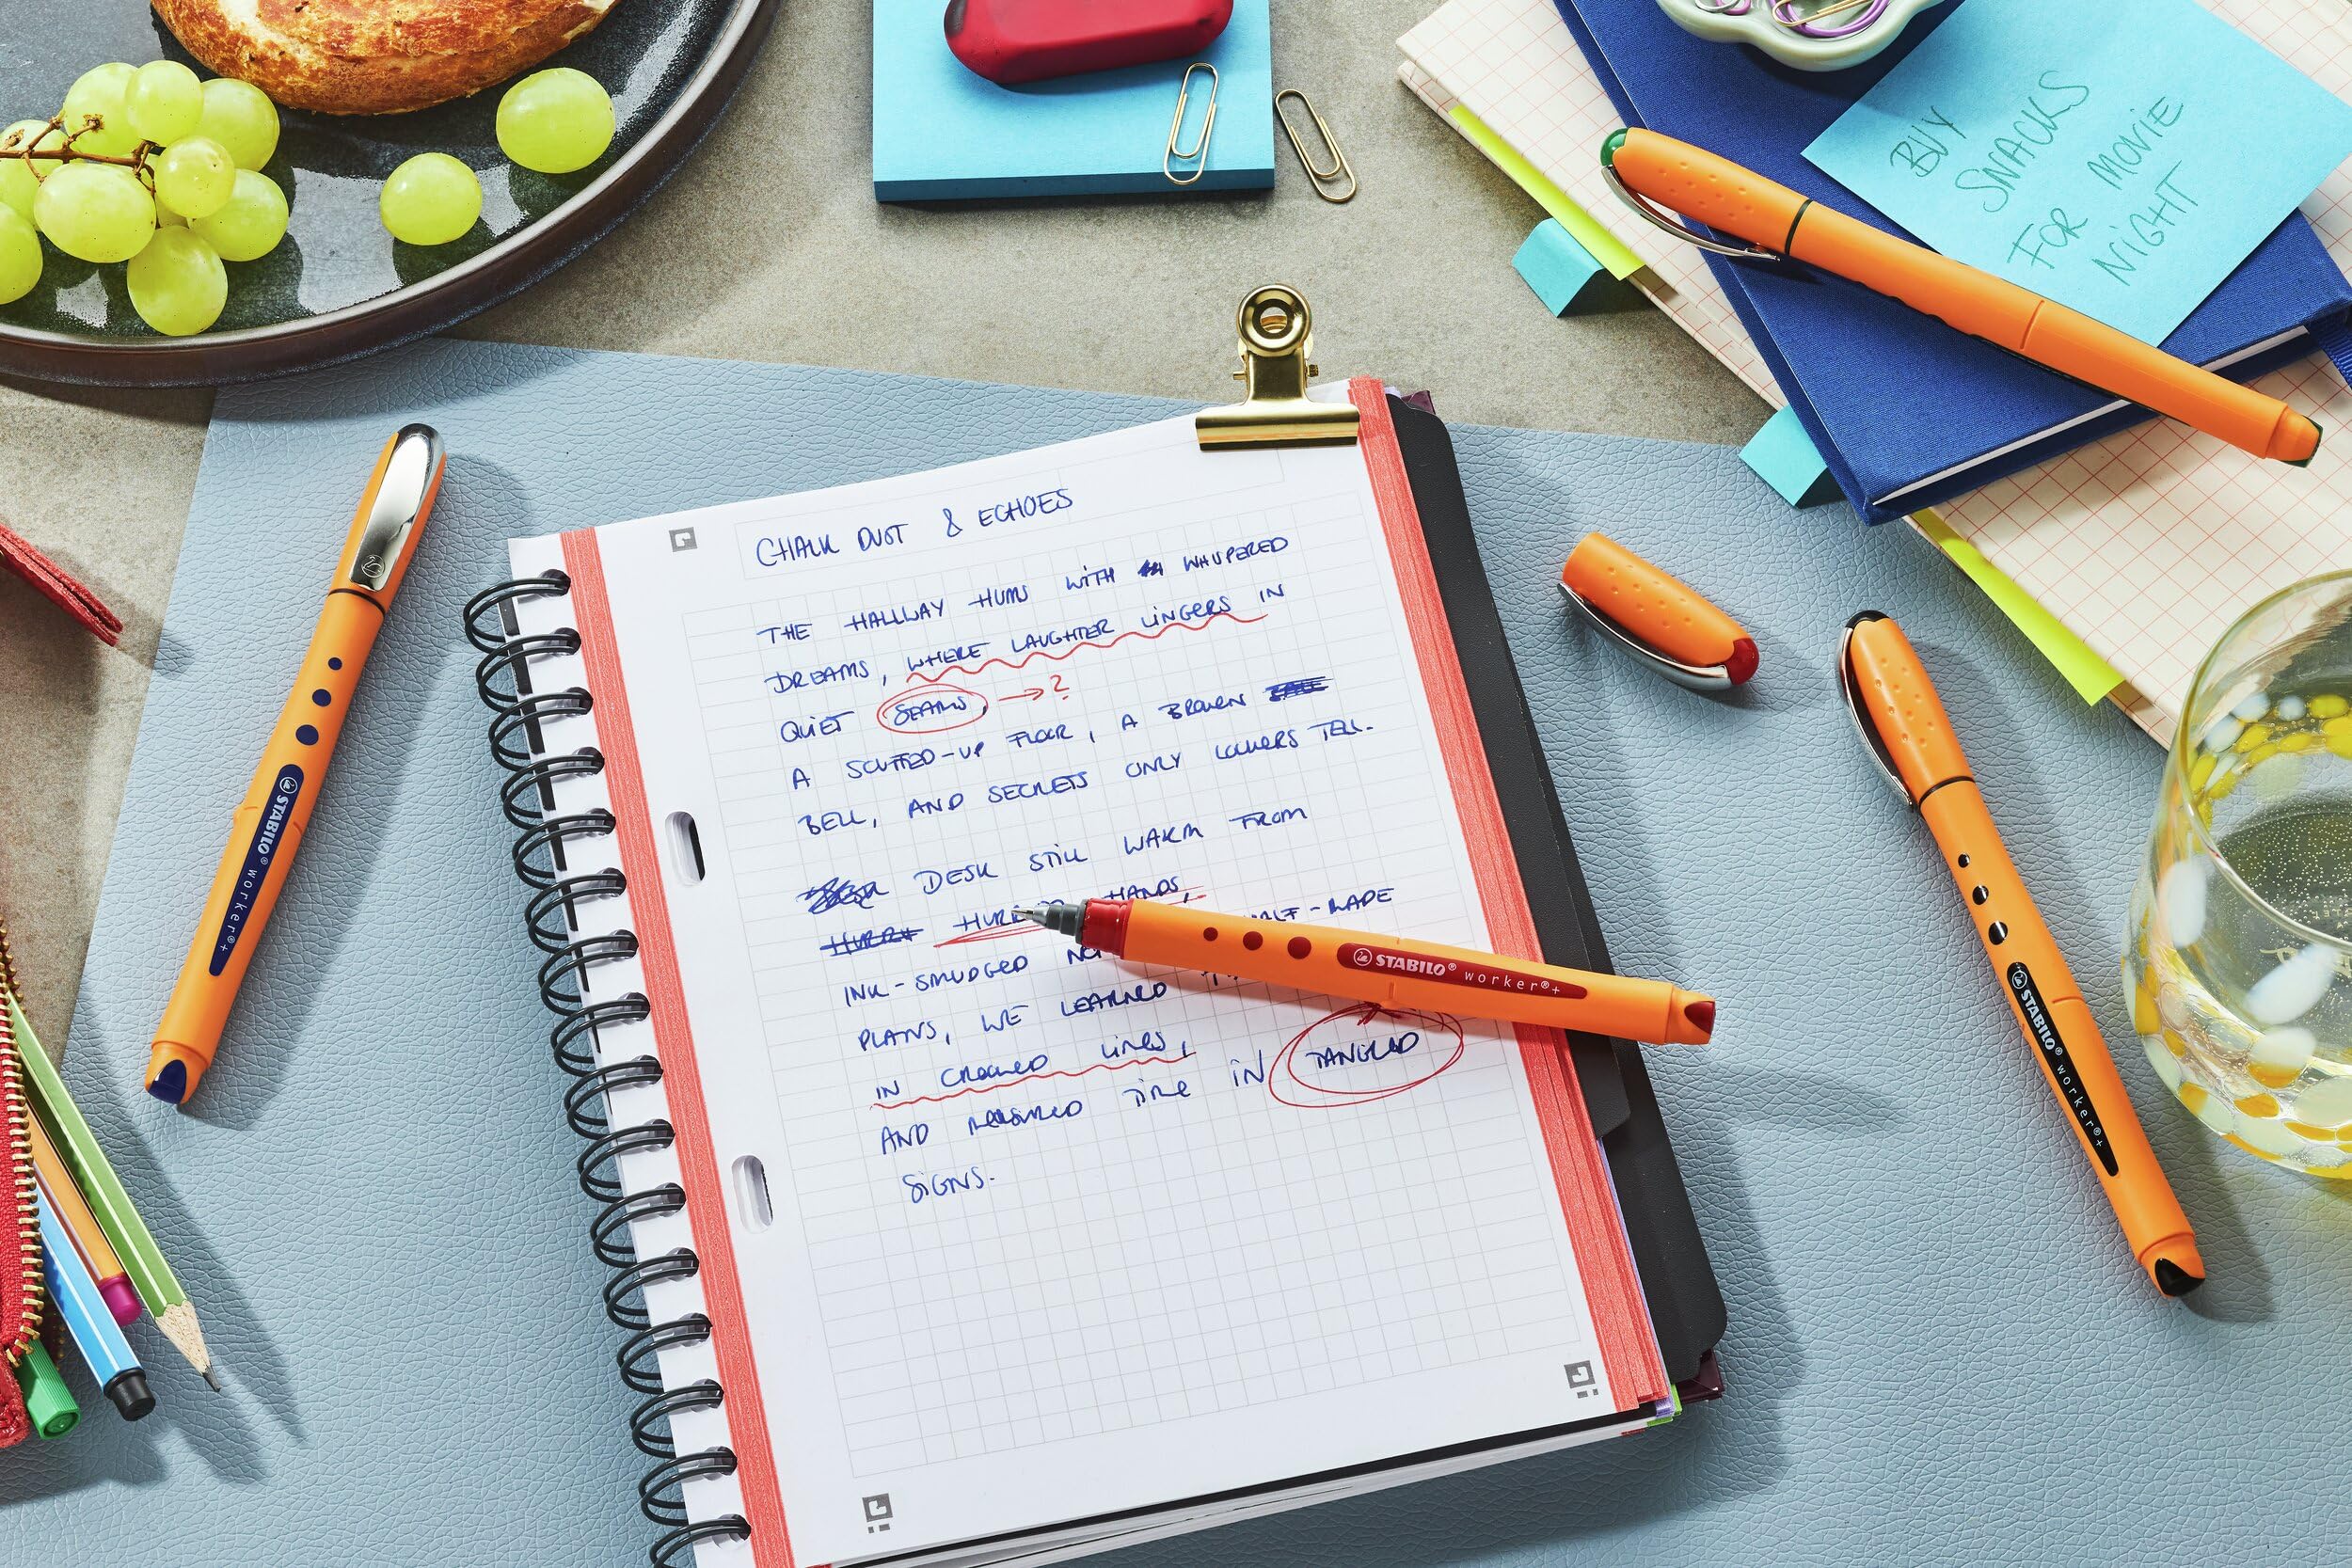 BUY
SNACKS
FOR MOVIE
NIGHT
CHALK DUST & ECHOES
THE HALLWAY HUMS WITH WHISPERED
DREAMS, WHERE LAUGHTER LINGERS IN
QUIET SEAMS, → ?
A SCUFFED-UP FLOOR, A BROKEN
BELL, AND SECRETS ONLY LOCKERS TELL.
DESK STILL WARM FROM
HANDS,
INK-SMUDGED HALF-MADE
PLANS, WE LEARNED
IN CROOKED LINES,
AND MEASURED TIME IN TANGLED
SIGNS.
STABILO® worker®+
STABILO® worker®+
STABILO® worker®+